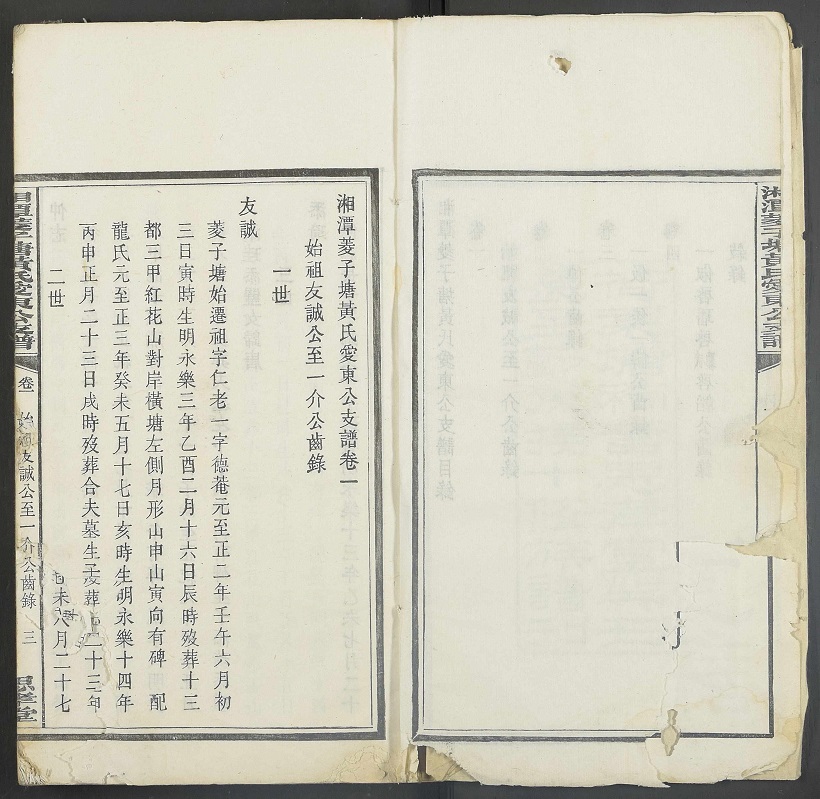 湘潭菱子塘黃氏愛東公支譜
湘潭菱子塘黃氏愛東公支譜卷一
始祖友誠公至一介公齒錄
一世
友誠
菱子塘始遷祖字仁老一字德菴元至正二年壬午六月初
三日寅時生明永樂三年乙酉二月十六日辰時歿葬十三
都三甲紅花山對岸橫塘左側月形山申山寅向有碑 配
龍氏元至正三年癸未五月十七日亥時生明永樂十四年
丙申正月二十三日戌時歿葬合夫墓生子
二世
未八月二十七
湘潭菱子塘黃氏愛東公支譜
卷一
始祖友誠公至一介公齒錄
三
思孝堂